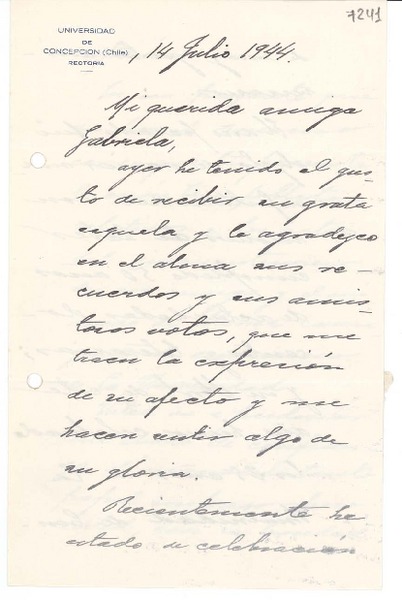 7241
UNIVERSIDAD
DE
CONCEPCION (Chile)
RECTORIA
, 14 Julio 1944.
Mi querida amiga
Gabriela,
ayer he tenido el gus-
to de recibir su grata
esquela y le agradezco
en el alma sus re-
cuerdos y sus amis-
tosos votos, que me
traen la expresión
de su afecto y me
hacen sentir algo de
su gloria.
Recientemente he
estado de celebración